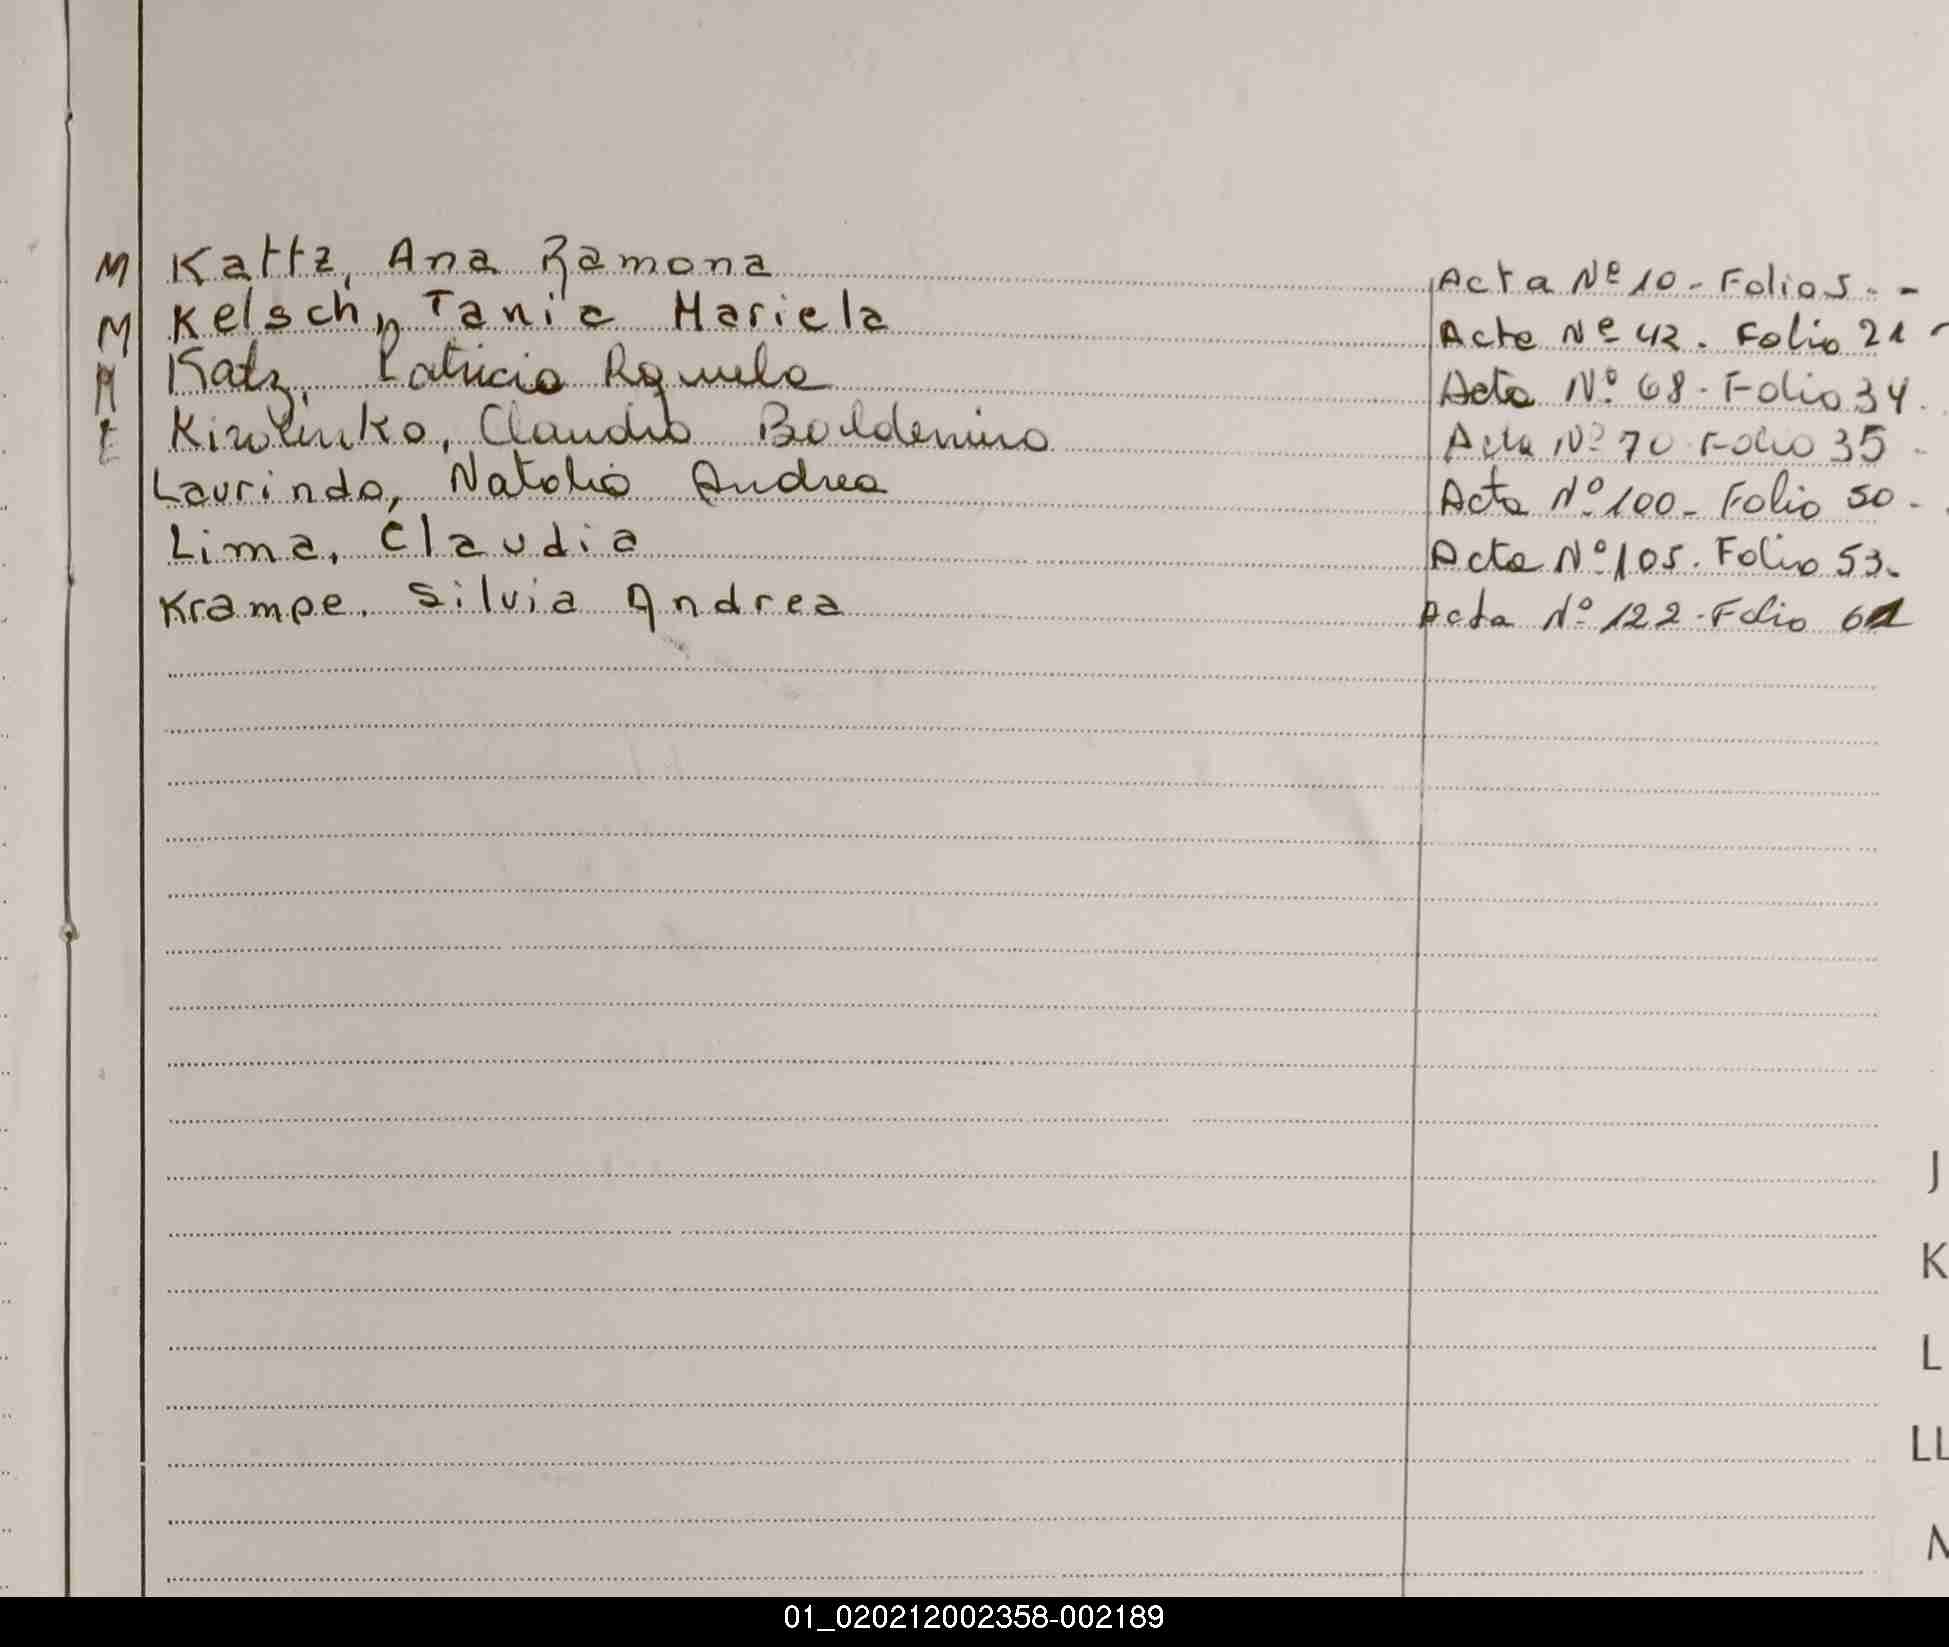 M Kattz, Ana Ramona Acta Nº 10 - Folio 5. -
M Kelsch, Tania Mariela Acta Nº 42. Folio 21 -
M Katz, Patricia Rquela Acta Nº 68 - Folio 34.
Claudio Acta Nº 70 Folio 35 -
Laurindo, Natalia Andrea Acta Nº 100 - Folio 50 -
Lima, Claudia Acta Nº 105. Folio 53.
Krampe. Silvia Andrea Acta Nº 122 - Folio 61
J
K
L
LL
01_020212002358-002189